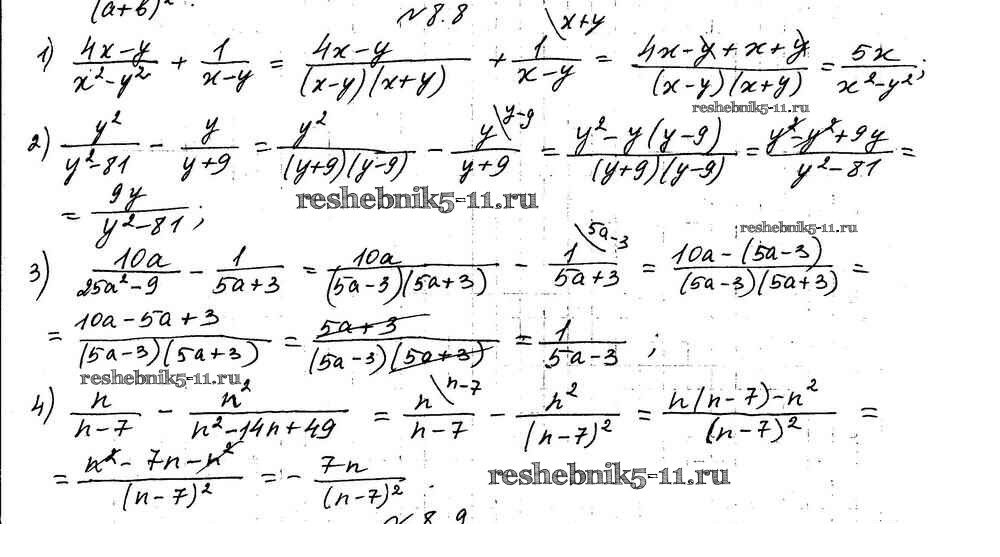 (a+b)²
№8.8
1) (4x−y)/(x²−y²) + 1/(x−y) = (4x−y)/((x−y)(x+y)) + 1\x+y/(x−y) = (4x−y+x+y)/((x−y)(x+y)) = 5x/(x²−y²);
reshebnik5-11.ru
2) y²/(y²−81) − y/(y+9) = y²/((y+9)(y−9)) − y\y−9/(y+9) = (y²−y(y−9))/((y+9)(y−9)) = (y²−y²+9y)/(y²−81) =
reshebnik5-11.ru
= 9y/(y²−81);
reshebnik5-11.ru
3) 10a/(25a²−9) − 1/(5a+3) = 10a/((5a−3)(5a+3)) − 1\5a−3/(5a+3) = (10a−(5a−3))/((5a−3)(5a+3)) =
= (10a−5a+3)/((5a−3)(5a+3)) = (5a+3)/((5a−3)(5a+3)) = 1/(5a−3);
reshebnik5-11.ru
4) n/(n−7) − n²/(n²−14n+49) = n\n−7/(n−7) − n²/(n−7)² = (n(n−7)−n²)/(n−7)² =
= (n²−7n−n²)/(n−7)² = − 7n/(n−7)².
reshebnik5-11.ru
№8.9